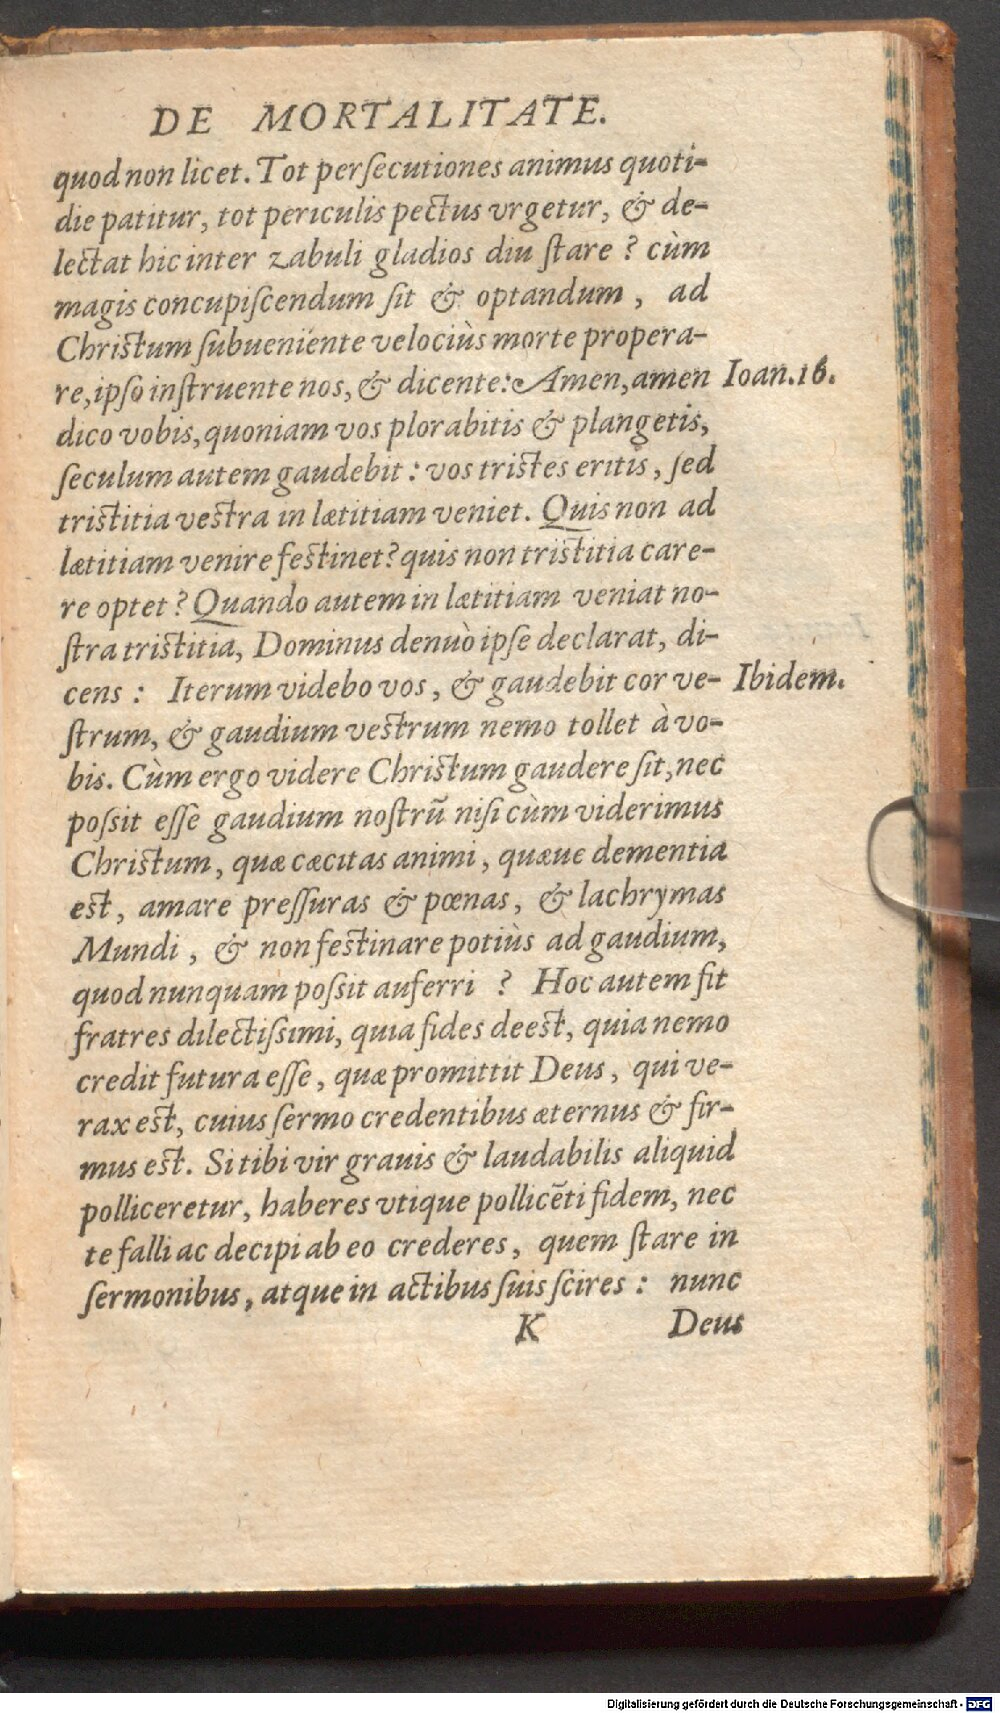 DE MORTALITATE.
quod non licet. Tot perſecutiones animus quoti-
die patitur, tot periculis pectus vrgetur, & de-
lectat hic inter zabuli gladios diu ſtare ? cùm
magis concupiſcendum ſit & optandum , ad
Chriſtum ſubueniënte velociùs morte propera-
re, ipſo inſtruente nos, & dicente: Amen, amen Ioan.16.
dico vobis, quoniam vos plorabitis & plangetis,
ſeculum autem gaudebit : vos triſtes eritis, ſed
triſtitia veſtra in lætitiam veniet. Quis non ad
lætitiam venire feſtinet? quis non triſtitia care-
re optet ? Quando autem in lætitiam veniat no-
ſtra triſtitia, Dominus denuò ipſe declarat, di-
cens : Iterum videbo vos, & gaudebit cor ve- Ibidem.
ſtrum, & gaudium veſtrum nemo tollet à vo-
bis. Cùm ergo videre Chriſtum gaudere ſit, nec
poſsit eſſe gaudium noſtrū niſi cùm viderimus
Chriſtum, quæ cæcitas animi, quæue dementia
eſt, amare preſſuras & pœnas, & lachrymas
Mundi , & non feſtinare potiùs ad gaudium,
quod nunquam poſsit auferri ? Hoc autem fit
fratres dilectiſsimi, quia fides deeſt, quia nemo
credit futura eſſe, quæ promittit Deus, qui ve-
rax eſt, cuius ſermo credentibus æternus & fir-
mus eſt. Si tibi vir grauis & laudabilis aliquid
polliceretur, haberes vtique pollicēti fidem, nec
te falli ac decipi ab eo crederes, quem ſtare in
ſermonibus, atque in actibus ſuis ſcires : nunc
K Deus
Digitalisierung gefördert durch die Deutsche Forschungsgemeinschaft - DFG